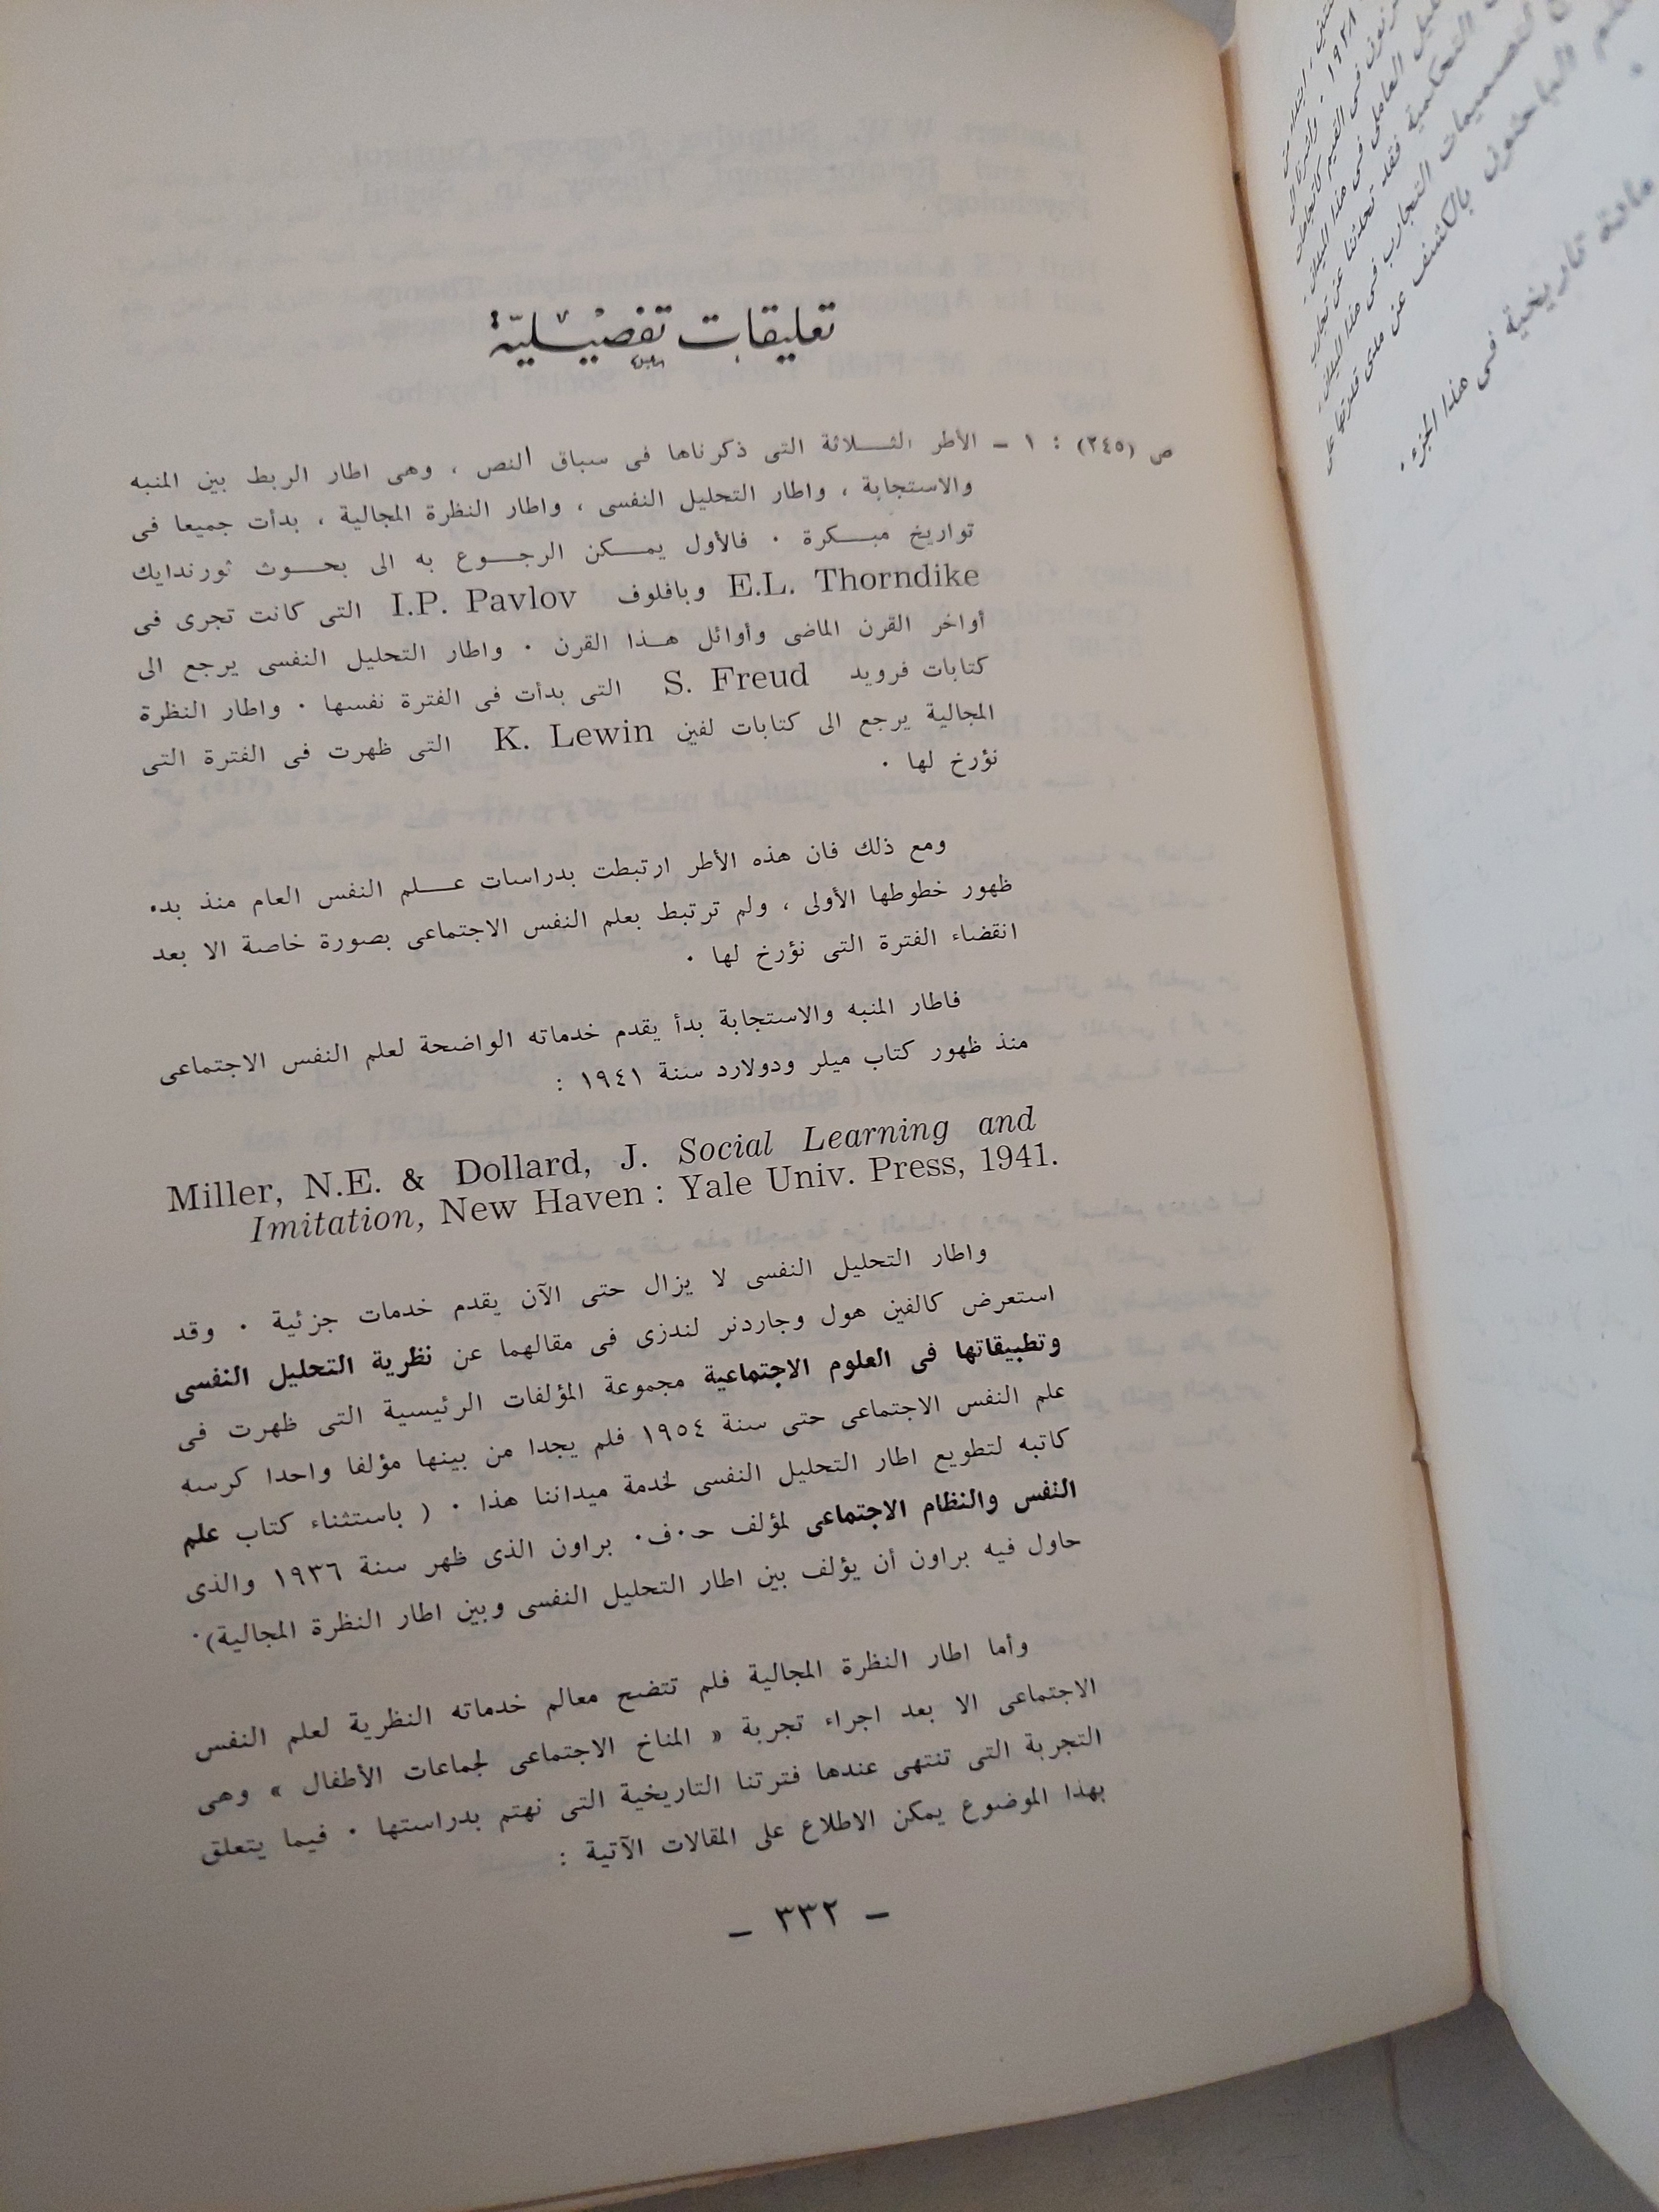 تعليقات تفصيلية
ص (٢٤٥) : ١ – الأطر الثلاثة التى ذكرناها فى سباق النص ، وهى اطار الربط بين المنبه
والاستجابة ، واطار التحليل النفسى ، واطار النظرة المجالية ، بدأت جميعا فى
تواريخ مبكرة . فالأول يمكن الرجوع به الى بحوث ثورندايك
E.L. Thorndike وبافلوف I.P. Pavlov التى كانت تجرى فى
أواخر القرن الماضى وأوائل هذا القرن . واطار التحليل النفسى يرجع الى
كتابات فرويد S. Freud التى بدأت فى الفترة نفسها . واطار النظرة
المجالية يرجع الى كتابات لفين K. Lewin التى ظهرت فى الفترة التى
نؤرخ لها .
ومع ذلك فان هذه الأطر ارتبطت بدراسات علم النفس العام منذ بدء
ظهور خطوطها الأولى ، ولم ترتبط بعلم النفس الاجتماعى بصورة خاصة الا بعد
انقضاء الفترة التى نؤرخ لها .
فاطار المنبه والاستجابة بدأ يقدم خدماته الواضحة لعلم النفس الاجتماعى
منذ ظهور كتاب ميلر ودولارد سنة ١٩٤١ :
Miller, N.E. & Dollard, J. Social Learning and
Imitation, New Haven : Yale Univ. Press, 1941.
واطار التحليل النفسى لا يزال حتى الآن يقدم خدمات جزئية . وقد
استعرض كالفين هول وجاردنر لندزى فى مقالهما عن نظرية التحليل النفسى
وتطبيقاتها فى العلوم الاجتماعية مجموعة المؤلفات الرئيسية التى ظهرت فى
علم النفس الاجتماعى حتى سنة ١٩٥٤ فلم يجدا من بينها مؤلفا واحدا كرسه
كاتبه لتطويع اطار التحليل النفسى لخدمة ميداننا هذا . ( باستثناء كتاب علم
النفس والنظام الاجتماعى لمؤلف حـ.ف. براون الذى ظهر سنة ١٩٣٦ والذى
حاول فيه براون أن يؤلف بين اطار التحليل النفسى وبين اطار النظرة المجالية).
وأما اطار النظرة المجالية فلم تتضح معالم خدماته النظرية لعلم النفس
الاجتماعى الا بعد اجراء تجربة « المناخ الاجتماعى لجماعات الأطفال » وهى
التجربة التى تنتهى عندها فترتنا التاريخية التى نهتم بدراستها . فيما يتعلق
بهذا الموضوع يمكن الاطلاع على المقالات الآتية :
– ٣٣٢ –
العاملى فى هذا الميدان .
التحكمية فقد تحدثنا عن تجارب
تصميمات التجارب فى هذا الميدان ،
الباحثون بالكشف عن مدى قدرتها على
مادة تاريخية فى هذا الجزء .